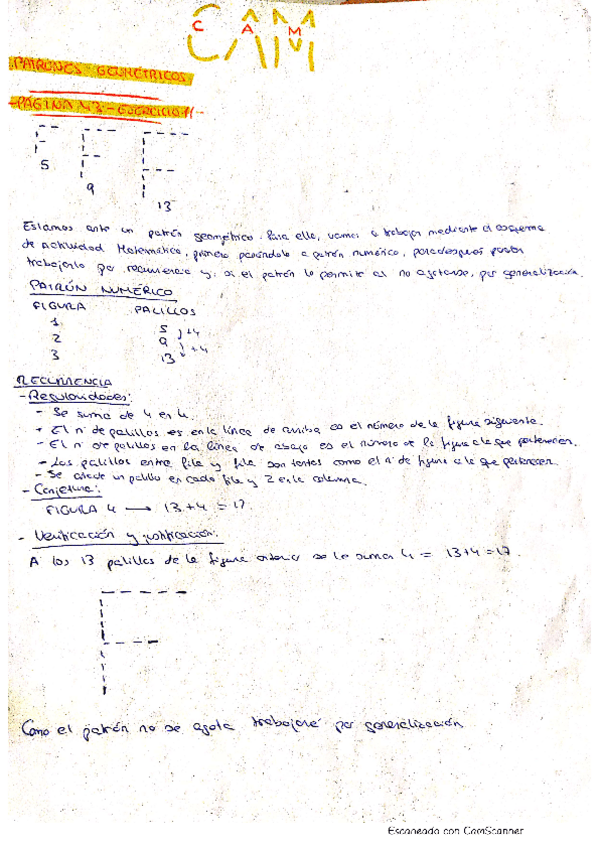 C A M
CAM
PATRONES GEOMÉTRICOS
-PÁGINA 43- EJERCICIO 11-
5
9
13
Estamos ante un patrón geométrico. Para ello, vamos a trabajar mediante el esquema
de Actividad Matemática, primero pasándolo a patrón numérico, para después pasar
trabajarlo por recurrencia y, si el patrón lo permite al no agotarse, por generalización.
PATRÓN NUMÉRICO
FIGURA PALILLOS
1 5
2 9
3 13
+4
+4
RECURRENCIA
- Regularidades:
- Se suma de 4 en 4.
- El nº de palillos es en la línea de arriba es el número de la figura siguiente.
- El nº de palillos en la línea de abajo es el número de la figura a la que pertenecen.
- Los palillos entre fila y fila son tantos como el nº de figura a la que pertenecen.
- Se añade un palillo en cada fila y 2 en la columna.
- Conjetura:
FIGURA 4 → 13+4=17.
- Verificación y justificación:
A los 13 palillos de la figura anterior se le suma 4 = 13+4=17.
Como el patrón no se agota trabajaré por generalización
Escaneado con CamScanner